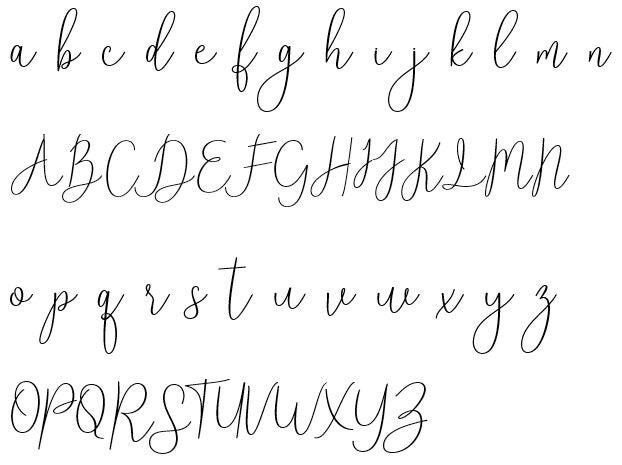 a b c d e f g h i j k l m n
ABCDEFGHIJKLMN
o p q r s t u v w x y z
OPQRSTUVWXYZ